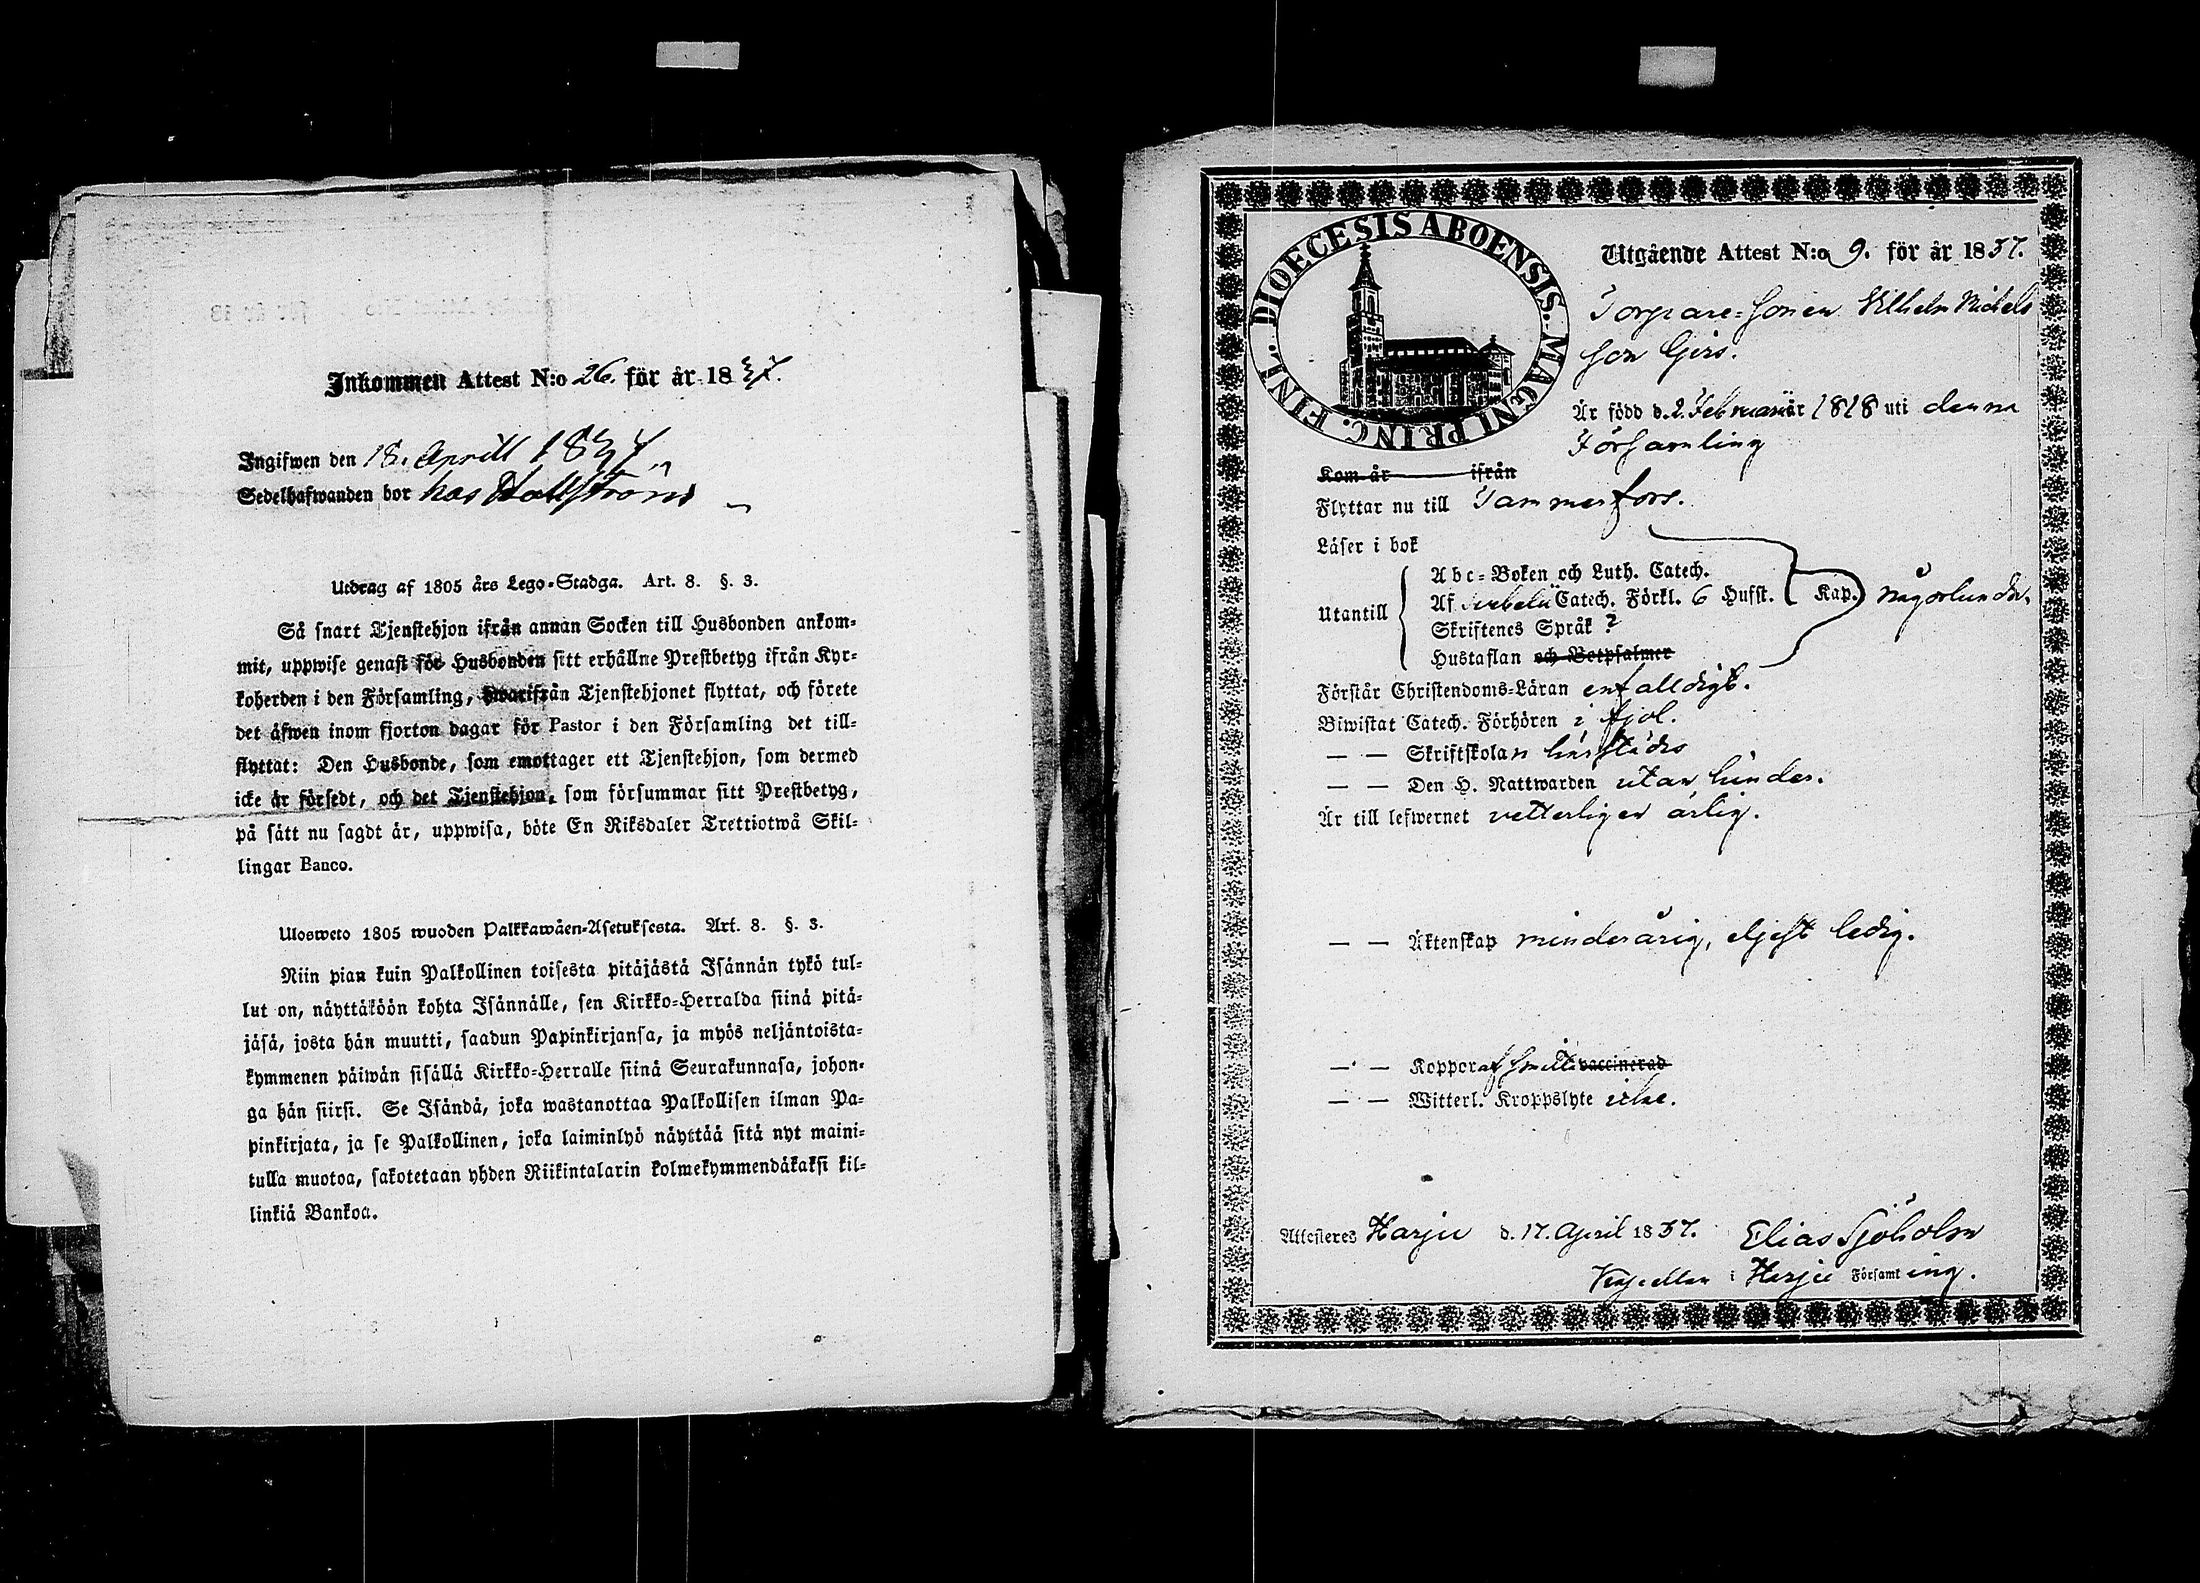 Inkommen Attest N:o 26. för år 1837.
Ingifwen den 18. Aprill 1837
Sedelhafwanden bor hos Hallström
Utdrag af 1805 års Lego-Stadga. Art. 8. §. 3.
Så snart Tjenstehjon ifrån annan Socken till Husbonden ankom-
mit, uppwise genast för Husbonden sitt erhållne Prestbetyg ifrån Kyr-
koherden i den Församling, hwarifrån Tjenstehjonet flyttat, och förete
det äfwen inom fjorton dagar för Pastor i den Församling det till-
flyttat: Den Husbonde, som emottager ett Tjenstehjon, som dermed
icke är försedt, och det Tjenstehjon, som försummar sitt Prestbetyg,
på sätt nu sagdt är, uppwisa, böte En Riksdaler Trettiotwå Skil-
lingar Banco.
Ulosweto 1805 wuoden Palkkawäen-Asetuksesta. Art. 8. §. 3.
Niin pian kuin Palkollinen toisesta pitäjästä Isännän tykö tul-
lut on, näyttäköön kohta Isännälle, sen Kirkko-Herralda siinä pitä-
jäsä, josta hän muutti, saadun Papinkirjansa, ja myös neljäntoista-
kymmenen päiwän sisällä Kirkko-Herralle siinä Seurakunnasa, johon-
ga hän siirsi. Se Isändä, joka wastanottaa Palkollisen ilman Pa-
pinkirjata, ja se Palkollinen, joka laiminlyö näyttää sitä nyt maini-
tulla muotoa, sakotetaan yhden Riikintalarin kolmekymmendäkaksi kil-
linkiä Bankoa.
DIOECESIS ABOENSIS. MAGNI PRINC. FINL.
Utgående Attest N:o 9. för år 1837.
Torpare-Sonen Vilhelm Michels
son Girs.
Är född d. 2. Februarii år 1818 uti denna
Församling
Kom år ifrån
Flyttar nu till Tammerfors.
Läser i bok
Abc-Boken och Luth. Catech.
Utantill Af Svebelii Catech. Förkl. 6 Husst. Kap. någorlunda.
Skriftenes Språk ?
Hustaflan och Botpsalmer
Förstår Christendoms-Läran enfalldigt.
Biwistat Catech. Förhören i fjol.
— — Skriftskolan härstädes
— — Den H. Nattwarden utan hinder.
Är till lefwernet vetterligen ärlig.
— — Äktenskap minderårig, eljest ledig.
— — Koppor af Smitta vaccinerad
— — Witterl. Kroppslyte icke.
Attesteres Harju d. 17. April 1837. Elias Sjöholm
Kapellan i Harju Församling.